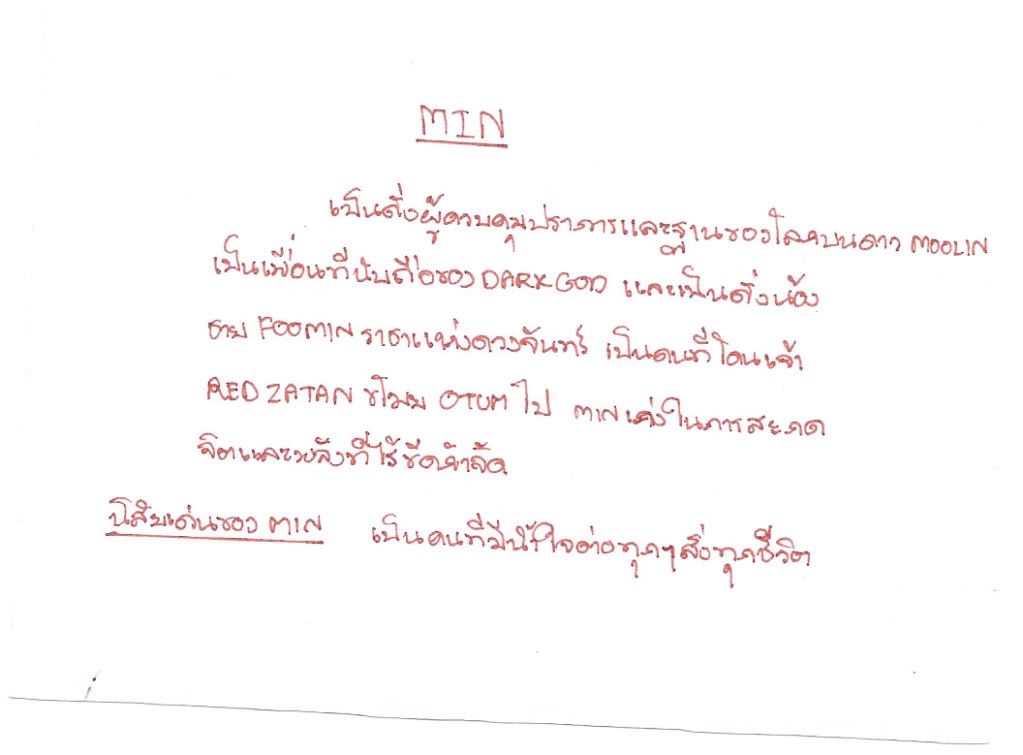 MIN
เป็นดั่งผู้ควบคุมปราการและฐานของโลกบนดาว MOOLIN
เป็นเพื่อนที่นับถือของ DARK GOD และเป็นดั่งน้อง
ชาย FOOMIN ราชาแห่งดวงจันทร์ เป็นคนที่โดนเจ้า
RED ZATAN ขโมย OTUM ไป MIN เก่งในการสะกด
จิตและพลังที่ไร้ขีดจำกัด
นิสัยเด่นของ MIN เป็นคนที่มีน้ำใจต่อทุกๆสิ่งทุกชีวิต